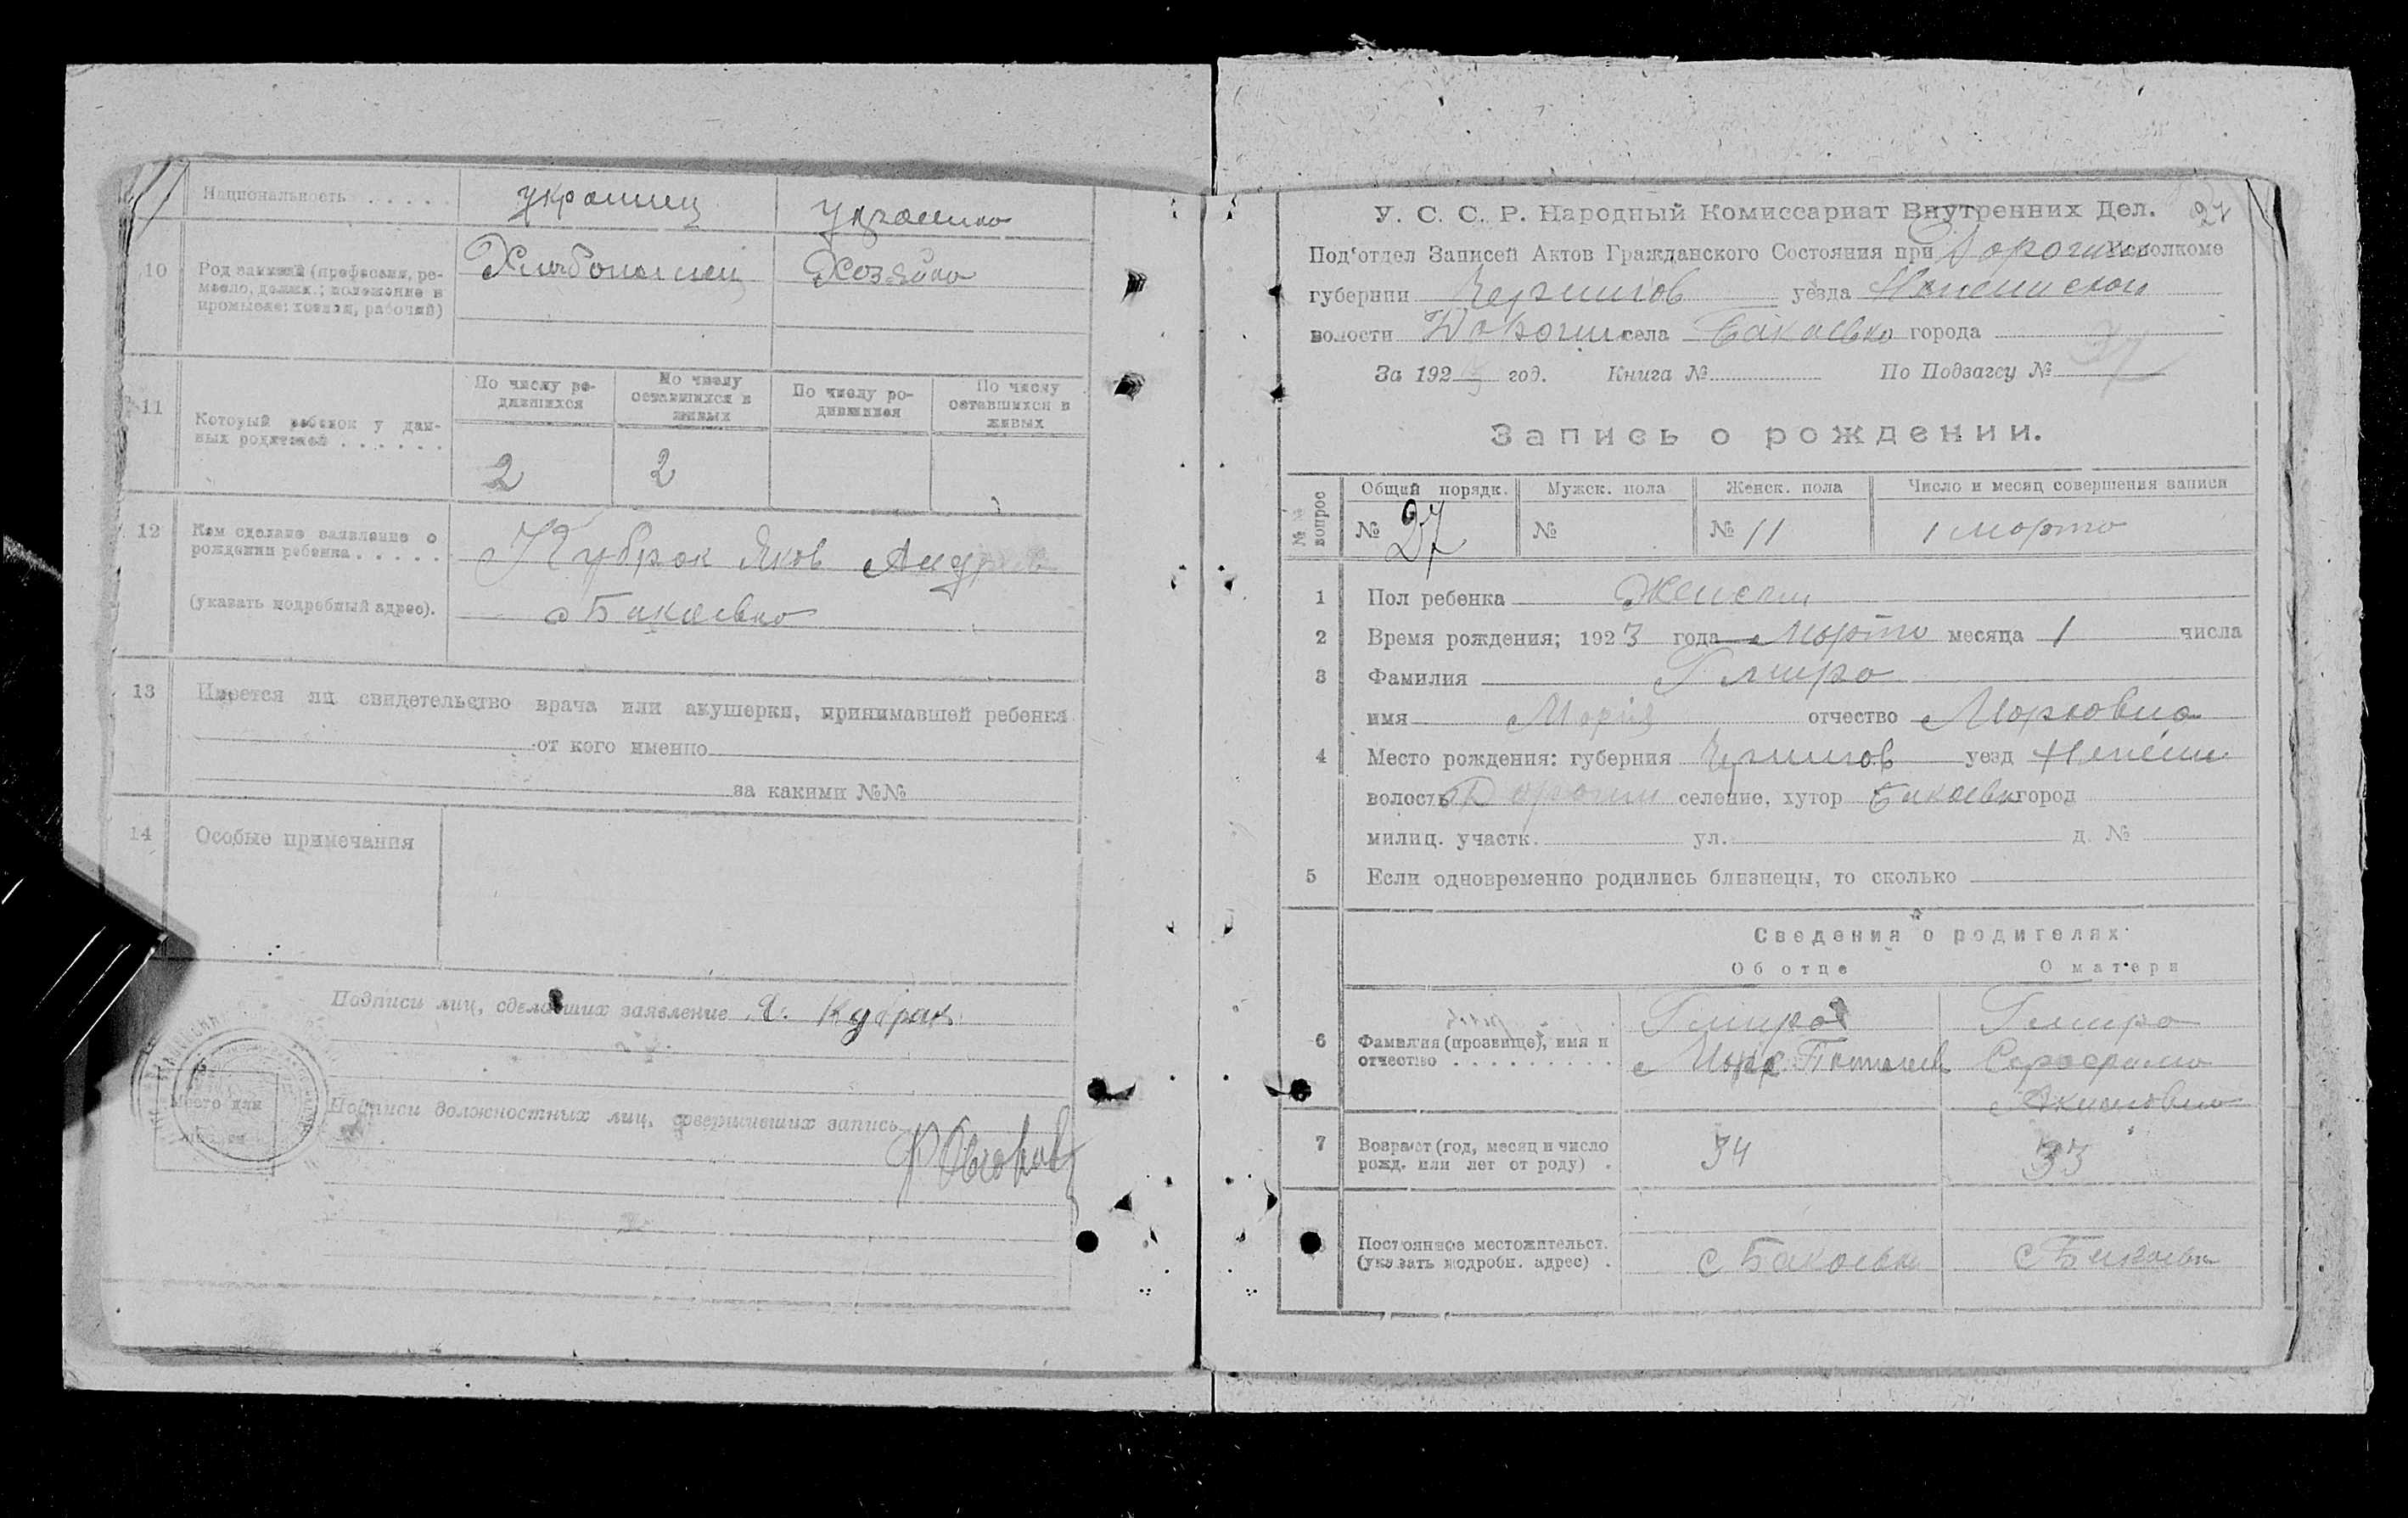 Национальность . . . . . украинец украинка
10 Род занятий (профессия, ре-
месло, должн.; положение в
промысле: хозяин, рабочий)
Хлебопашец Хозяйка
11 Который ребенок у дан-
ных родителей . . . . . .
По числу ро-
дившихся
По числу
оставшихся в
живых
По числу ро-
дившихся
По числу
оставшихся в
живых
2 2
12 Кем сделано заявление о
рождении ребенка . . . . .
(указать подробный адрес).
Кубрак Яков Андреев
с Бакаевка
13 Имеется ли свидетельство врача или акушерки, принимавшей ребенка
от кого именно
за какими №№
14 Особые примечания
Подписи лиц, сделавших заявление Я. Кубрак
Место для
печати
Подписи должностных лиц, совершивших запись
27
У. С. С. Р. Народный Комиссариат Внутренних Дел.
Под'отдел Записей Актов Гражданского Состояния при Дорогин исполкоме
губернии Чернигов уезда Нежинской
волости Дорогин села Бакаевка города
За 1923 год. Книга № По Подзагсу № 27
Запись о рождении.
№№ вопрос
Общий порядк. Мужск. пола Женск. пола Число и месяц совершения записи
№ 27 № № 11 1 марта
1 Пол ребенка Женский
2 Время рождения; 1923 года Марта месяца 1 числа
3 Фамилия Гмиря
имя Мария отчество Марковна
4 Место рождения: губерния Чернигов уезд Нежин
волость Дорогин селение, хутор Бакаевка город
милиц. участк. ул. д. №
5 Если одновременно родились близнецы, то сколько
Сведения о родителях
Об отце О матери
6 Фамилия (прозвище), имя и
отчество . . . . . . . . . .
Гмиря
Марк
Гмиря
Серафима
Акимовна
7 Возраст (год, месяц и число
рожд. или лет от роду) .
34 33
Постоянное местожительст.
(указать подробн. адрес) .
с Бакаевка с Бакаевка